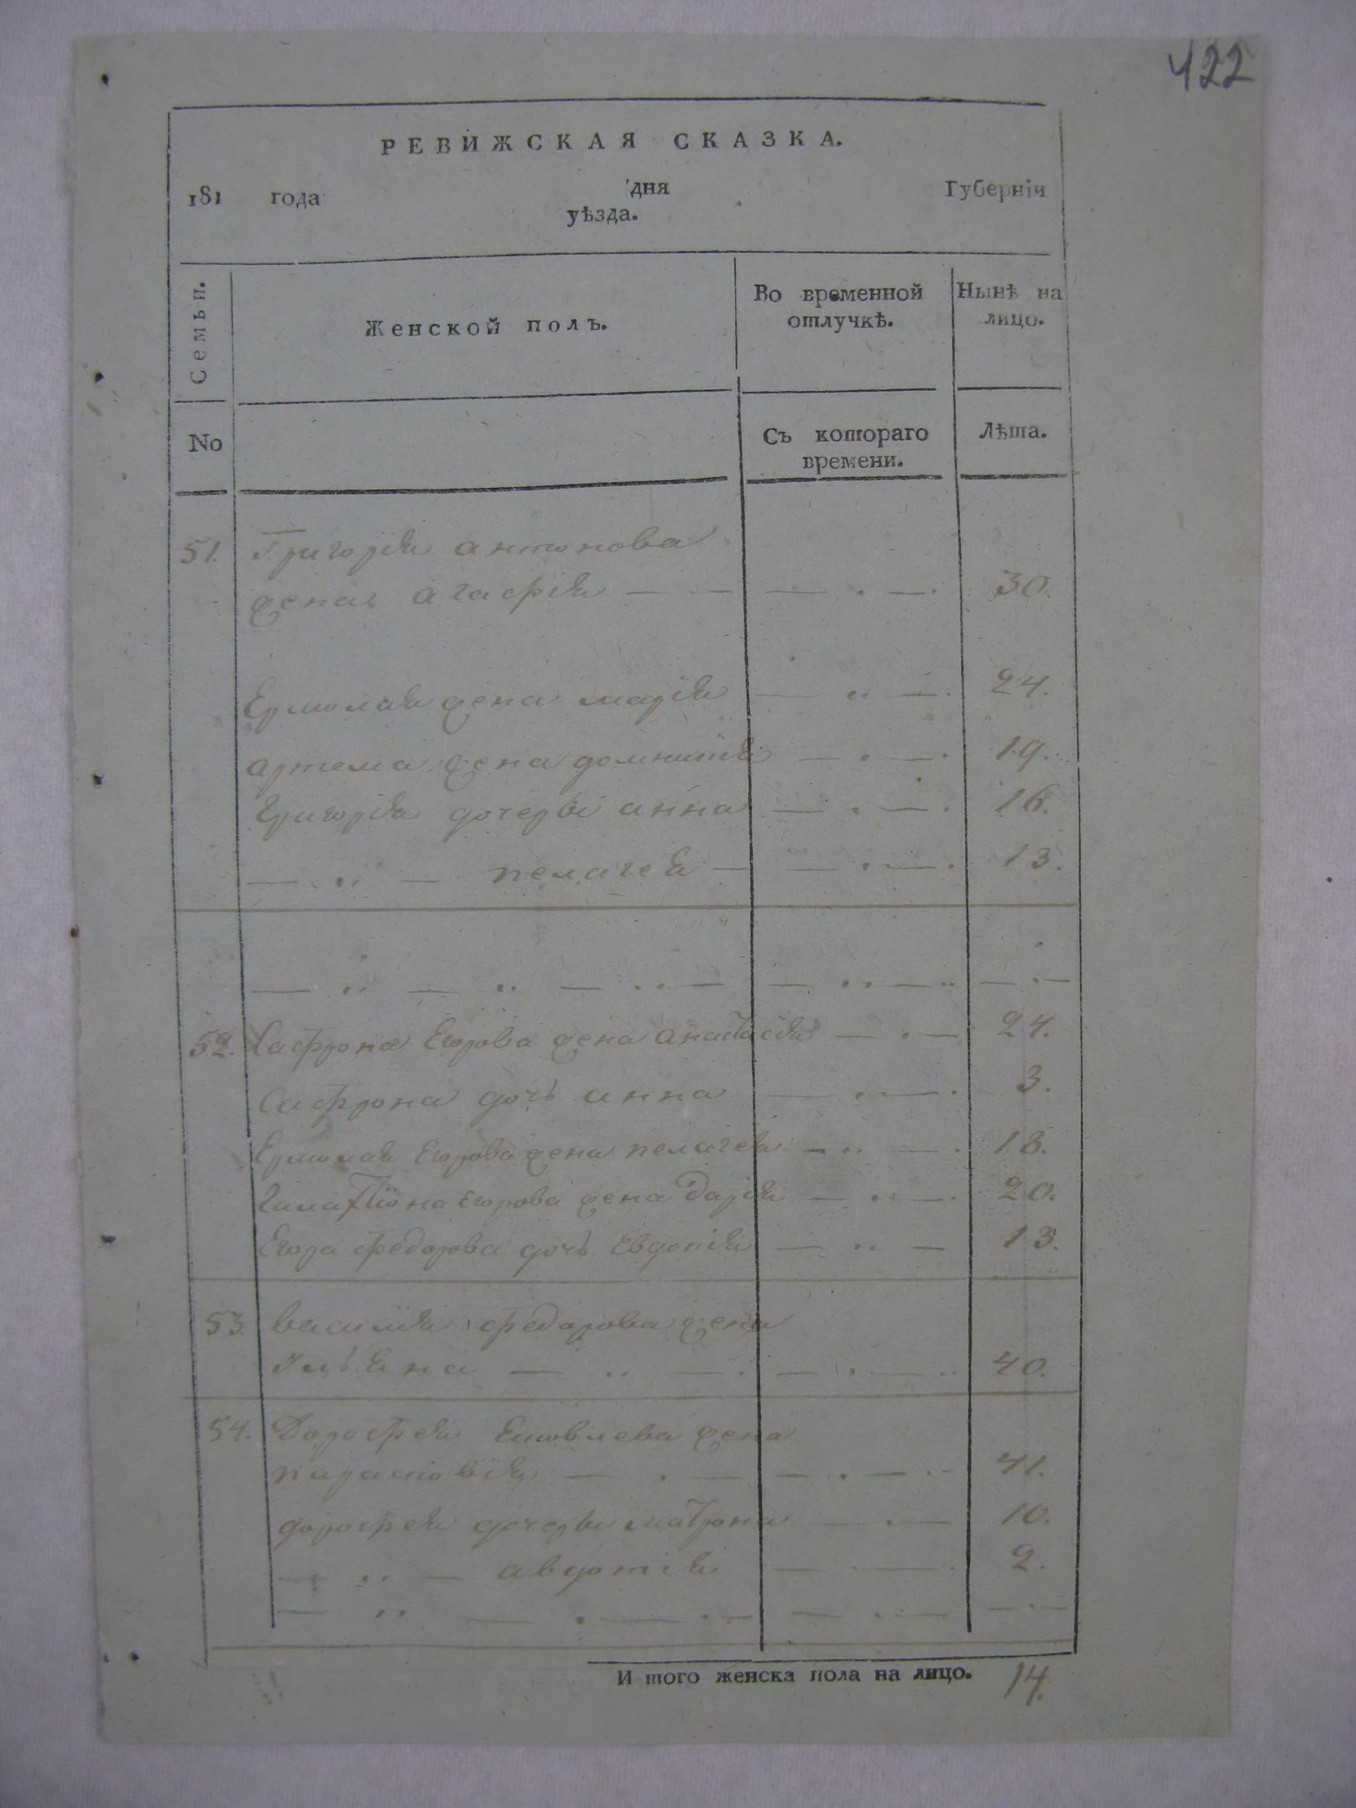 422
РЕВИЖСКАЯ СКАЗКА.
181 года дня Губернїи
уѣзда.
Семьи.
Женской полъ.
Во временной отлучкѣ.
Нынѣ на лицо.
No
Съ котораго времени.
Лѣта.
51. Григорїя антонова
жена агафїя — — — . — . 30.
Ермолая жена марїя — .. — . 24.
артема жена домникїя — . — . 19.
Григорїя дочери анна — . — . 16.
— .. — пелагея — — . — . 13.
— .. — .. — .. — — .. — .. — . —
52. Сафрона Егорова жена анастасїя — . — 24.
Сафрона дочь анна — .. — . 3.
Ермолая Егорова жена пелагея — .. — . 18.
Галактїона Егорова жена Дарїя — .. — . 20.
Егора федорова дочь Евдокїя — .. — 13.
53. василїя федорова жена
Ульяна — .. — . — .. — .. 40.
54. Дорофея Ековлева жена
парасковїя — . — — . — .. 41.
дорофея дочери матрона — . — 10.
— .. — авдотїя — — . 2.
— .. — . — . — — . — — . —
И того женска пола на лицо. 14.